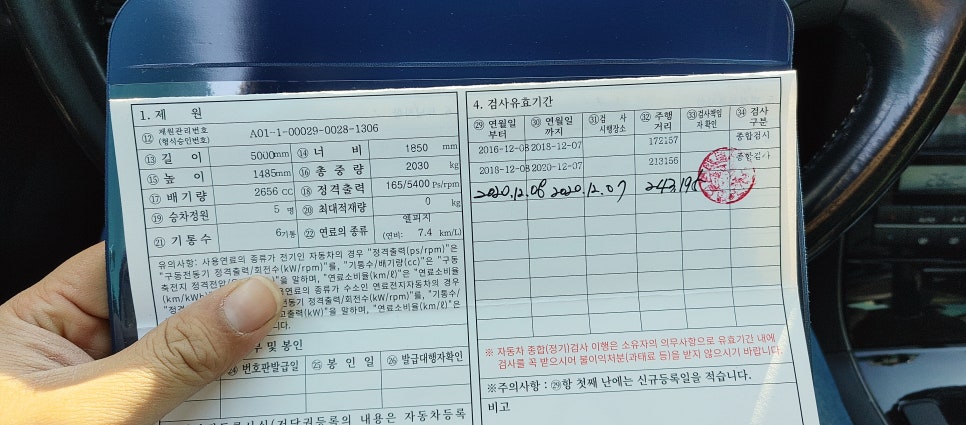 1. 제 원
⑫ 제원관리번호 (형식승인번호) A01-1-00029-0028-1306
⑬ 길 이 5000mm ⑭ 너 비 1850 mm
⑮ 높 이 1485mm ⑯ 총 중 량 2030 kg
⑰ 배 기 량 2656 CC ⑱ 정격출력 165/5400 Ps/rpm
⑲ 승차정원 5 명 ⑳ 최대적재량 0 kg
㉑ 기 통 수 6기통 ㉒ 연료의 종류 엘피지
(연비: 7.4 km/L)
유의사항: 사용연료의 종류가 전기인 자동차의 경우 "정격출력(ps/rpm)"은
"구동전동기 정격출력/회전수(kW/rpm)"를, "기통수/배기량(cc)"은 "구동
축전지 정격전압/
"을 말하며, "연료소비율(km/ℓ)"은 "연료소비율
(km/kWh)
연료의 종류가 수소인 연료전지자동차의 경우
"정격
전동기 정격출력/회전수(kW/rpm)"를, "기통수/
출력(kW)"을 말하며, "연료소비율(km/ℓ)"은
니다.
부 및 봉인
㉔ 번호판발급일 ㉕ 봉 인 일 ㉖ 발급대행자확인
(저당권등록의 내용은 자동차등록
4. 검사유효기간
㉙ 연월일 부터 ㉚ 연월일 까지 ㉛ 검 사 시행장소 ㉜ 주행 거리 ㉝ 검사책임자 확인 ㉞ 검사 구분
2016-12-08 2018-12-07 172157 종합검사
2018-12-08 2020-12-07 213156 종합검사
2020.12.08 2020.12.07 243.19
※ 자동차 종합(정기)검사 이행은 소유자의 의무사항으로 유효기간 내에
검사를 꼭 받으시어 불이익처분(과태료 등)을 받지 않으시기 바랍니다.
※주의사항 : ㉙항 첫째 난에는 신규등록일을 적습니다.
비고